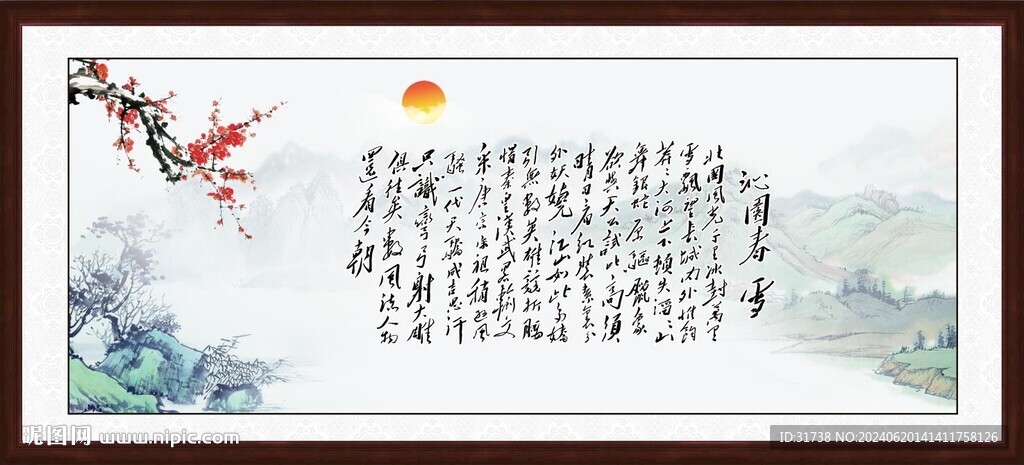 沁園春 雪
北國風光千里冰封萬里
雪飄望長城内外惟餘
莽莽大河上下頓失滔滔山
舞銀蛇原驅臘象
欲與天公試比高須
晴日看紅裝素裹分
外妖嬈江山如此多嬌
引無數英雄競折腰
惜秦皇漢武略輸文
采唐宗宋祖稍遜風
騷一代天驕成吉思汗
只識彎弓射大雕
俱往矣數風流人物
還看今朝
昵图网 www.nipic.com
ID:31738 NO:20240620141411758126